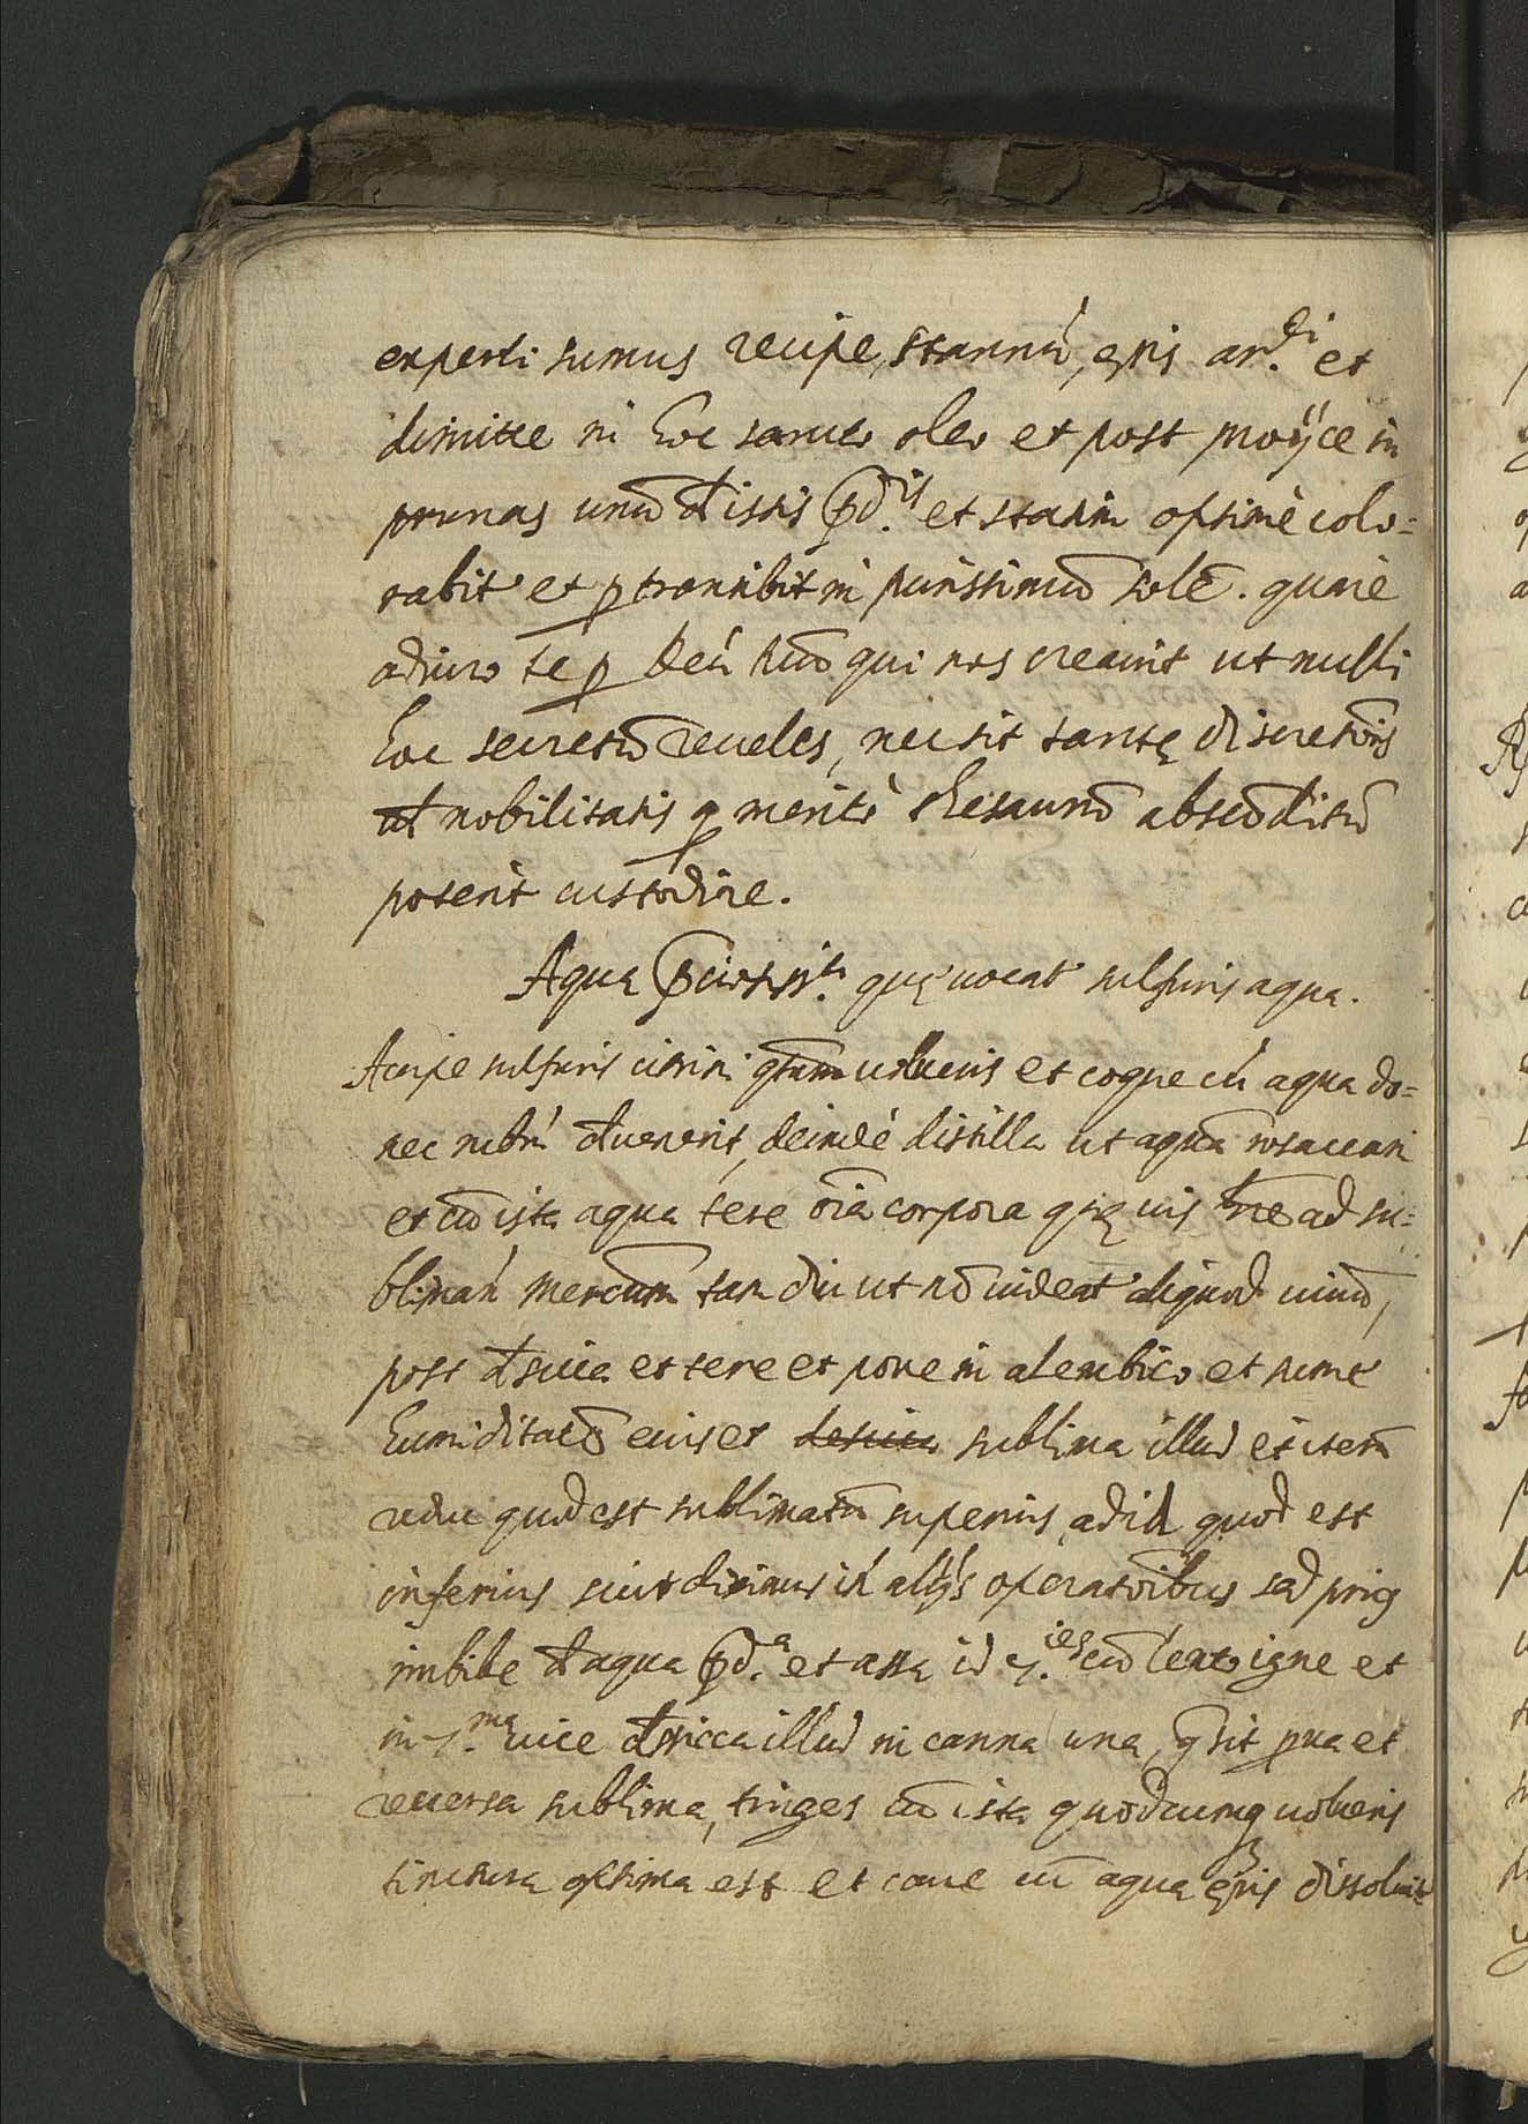 experti sumus recipe, stannũ, ęris ar.di et
dimitte in hoc sancto oleo et post proÿce in
prunas unũ d istis pd.is et statim optimè colo=
rabit et p transibit in purissimũ solē. quare
adiuro te p deũ tuũ qui nos creauit ut nulli
hoc secretũ reueles, ne sit tantę discretiõis
ut nobilitatis q meritò thesaurũ abscõditũ
poterit custodire.
Aqua pciosiss.a quę uocat sulfuris aqua.
Accipe sulfuris citrini qtum uolueris et coque cũ aqua do=
nec rubrũ duenerit, deindè distilla ut aquã rosaceam
et cũ ista aqua tere oĩa corpora quę uis et ad su=
blimañ mercum tam diu ut nõ uideat aliquod uiuũ,
post dsicca et tere et pone in alembico et sume
humiditatẽ eius et desicca sublima illud et iterũ
reduc quod est sublimatũ superius, ad id quod est
inferius sicut diximus in alijs operatiõibus sed prius
imbibe d aqua pd.a et assa id 7.ies cũ lento igne et
in 7.ma uice dsicca illud in canna una, q sit pua et
reuersa sublima, tinges cũ ista quodcumq uolueris
tinctura optima est et caue cũ aqua ęris dissoluit